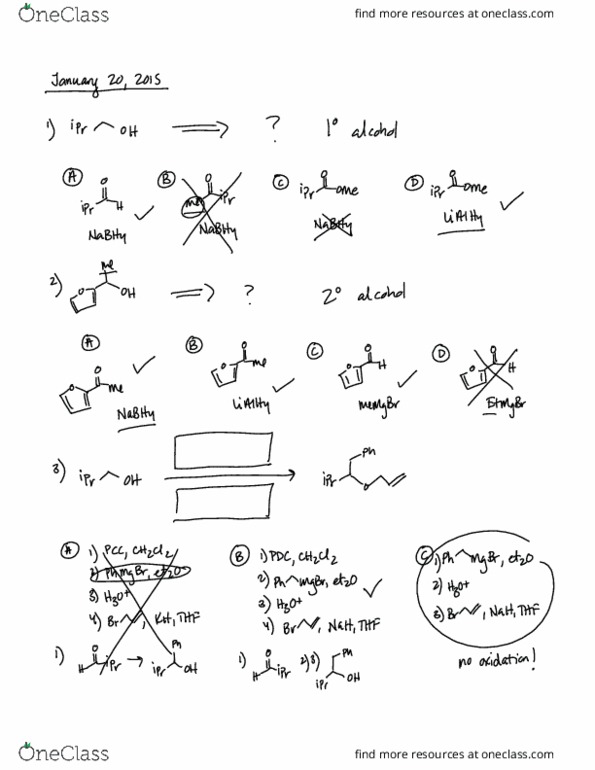 OneClass
find more resources at oneclass.com
January 20, 2015
1) iPr OH ? 1° alcohol
A B C D
O O O O
iPr H me iPr iPr ome iPr ome
NaBH4 NaBH4 NaBH4 LiAlH4
me
2) O OH ? 2° alcohol
A B C D
O O O O
O me O me O H O H
NaBH4 LiAlH4 meMgBr EtMgBr
Ph
3) iPr OH iPr O
A 1) PCC, CH2Cl2
2) PhmgBr, et2O
3) H3O+
4) Br , KH, THF
1) O H iPr Ph iPr OH
B 1) PDC, CH2Cl2
2) Ph mgBr, et2O
3) H3O+
4) Br , NaH, THF
1) O H iPr 2) 3) Ph iPr OH
C 1) Ph mgBr, et2O
2) H3O+
3) Br , NaH, THF
no oxidation!
OneClass
find more resources at oneclass.com